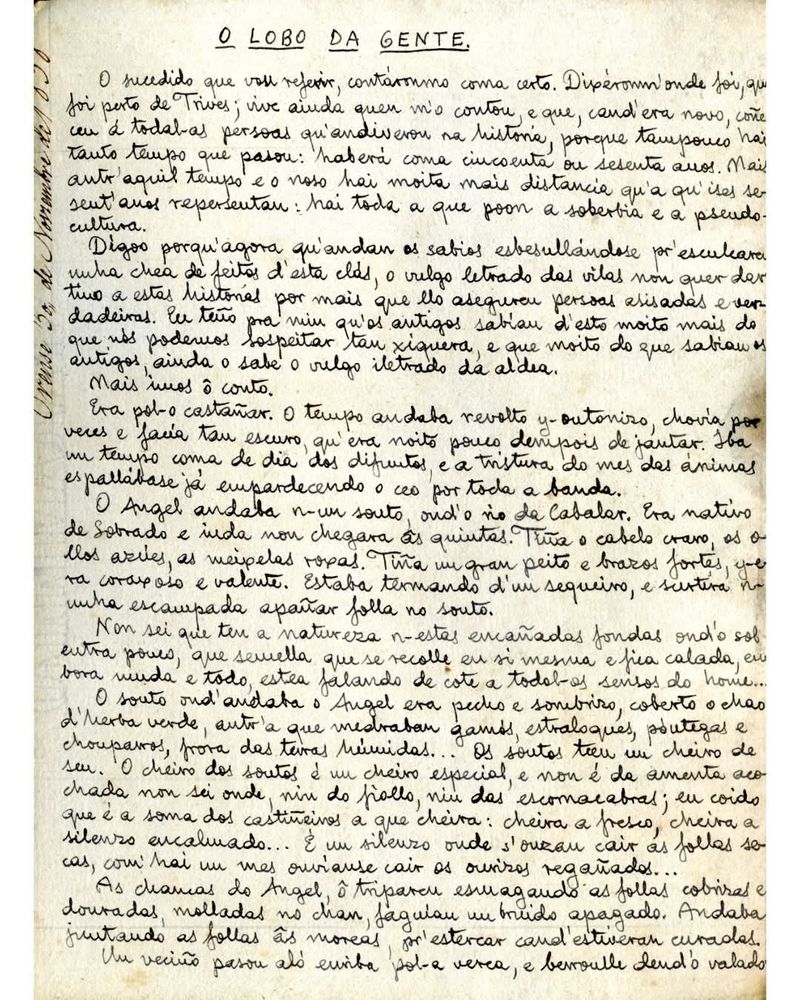 O LOBO DA GENTE.
O sucedido que vou referir, contáronmo coma certo. Dixéronm'onde foi, qu
foi perto de Trives; vive ainda quen m'o contou, e que, cand'era novo, coñe
ceu á todal-as persoas qu'andiveron na historia, porque tampouco hai
tanto tempo que pasou: haberá coma cincoenta ou sesenta anos. Mais
antr'aquil tempo e o noso hai moita mais distancia qu'a qu'ises se-
sent'anos repersentan: hai toda a que poon a soberbia e a pseudo-
cultura.
Dígoo porqu'agora qu'andan os sabios esbesullándose pr'esculcaren
unha chea de feitos d'esta clás, o vulgo letrado das vilas non quer dar
tino a estas historias por mais que llo aseguren persoas asisadas e ver-
dadeiras. Eu teño pra min qu'os antigos sabian d'esto moito mais do
que nós podemos sospeitar tan xiquera, e que moito do que sabian os
antigos, ainda o sabe o vulgo iletrado da aldea.
Mais imos ô conto.
Era pol-o castañar. O tempo andaba revolto y-outonizo, chovia por
veces e facía tan escuro, qu'era noite pouco dempois de jantar. Iba
un tempo coma de dia dos difuntos, e a tristura do mes das ánimas
espallábase já empardecendo o ceo por toda a banda.
O Angel andaba n-un souto, ond'o rio da Cabalar. Era nativo
de Sobrado e inda non chegara ás quintas. Tiña o cabelo craro, os o-
llos azúes, as meixelas roxas. Tiña un gran peito e brazos fortes, y-e-
ra coraxoso e valente. Estaba termando d'un sequeiro, e surtira n-
unha escampada apañar folla no souto.
Non sei que ten a natureza n-estas encañadas fondas ond'o sol
entra pouco, que semella que se recolle en si mesma e fica calada, em
bora muda e todo, estea falando de cote a todol-os sensos do home...
O souto ond'andaba o Angel era pecho e sombrizo, coberto o chao
d'herba verde, antr'a que medraban gamós, estraloques, póutegas e
chouparros, frora das terras húmidas... Os soutos ten un cheiro de
seu. O cheiro dos soutos é un cheiro especial, e non é da amenta aco-
chada non sei onde, nin do fiollo, nin das escornacabras; eu coido
que é a soma dos castiñeiros a que cheira: cheira a fresco, cheira a
silenzo encalmado... É un silenzo onde s'ouzan cair ás follas se-
cas, com'hai un mes ouvianse cair os ourizos regañados...
As chancas do Angel, ô triparen esmagando as follas cobrizas e
douradas, molladas no chan, faguian un bruido apagado. Andaba
juntando as follas ás moreas, pr'estercar cand'estiveran curadas.
Un veciño pasou aló enriba pol-a verea, e berroulle dend'o valado
Orense 30 de Novembre de